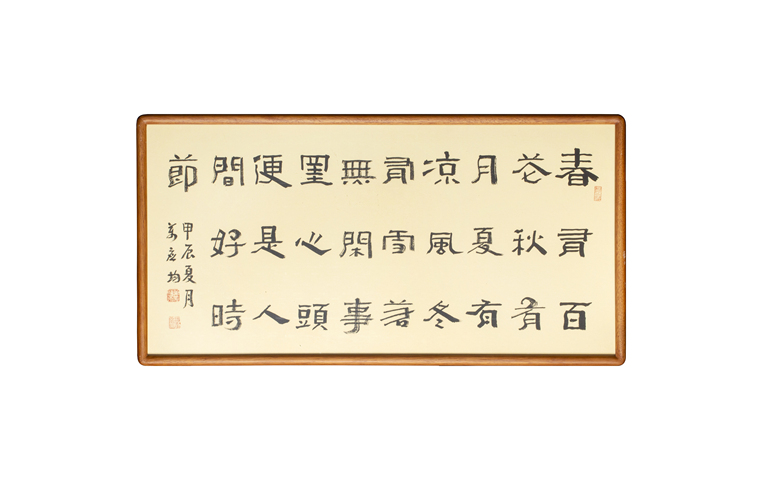 春有百
花秋有
月夏有
凉風冬
有雪若
無閑事
罣心頭
便是人
間好時
節
甲辰夏月
均